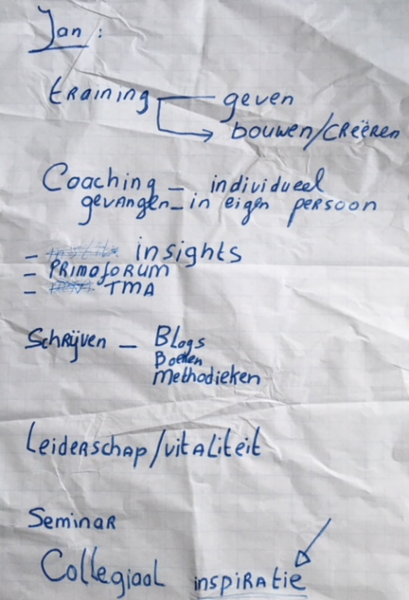 Jan :
training — geven
bouwen/creëren
Coaching – individueel
gevangen – in eigen persoon
– insights
– Primoforum
– TMA
Schrijven – Blogs
Boeken
Methodieken
Leiderschap/vitaliteit
Seminar
Collegiaal inspiratie